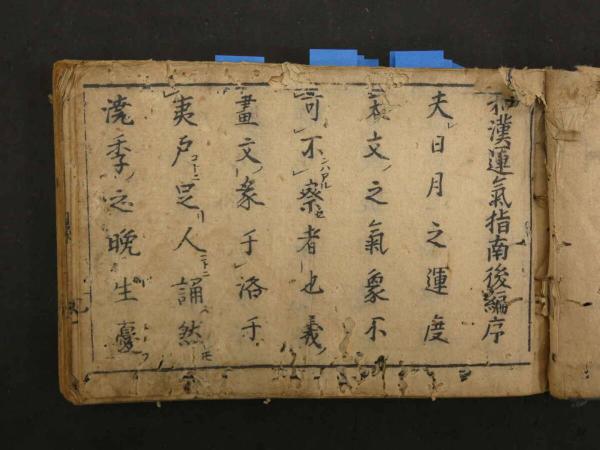 和漢運氣指南後編序
夫日月之運度
文之氣象不
可不察者也義
畫文象于洛于
夷戸足人誦然
澆季之晩生